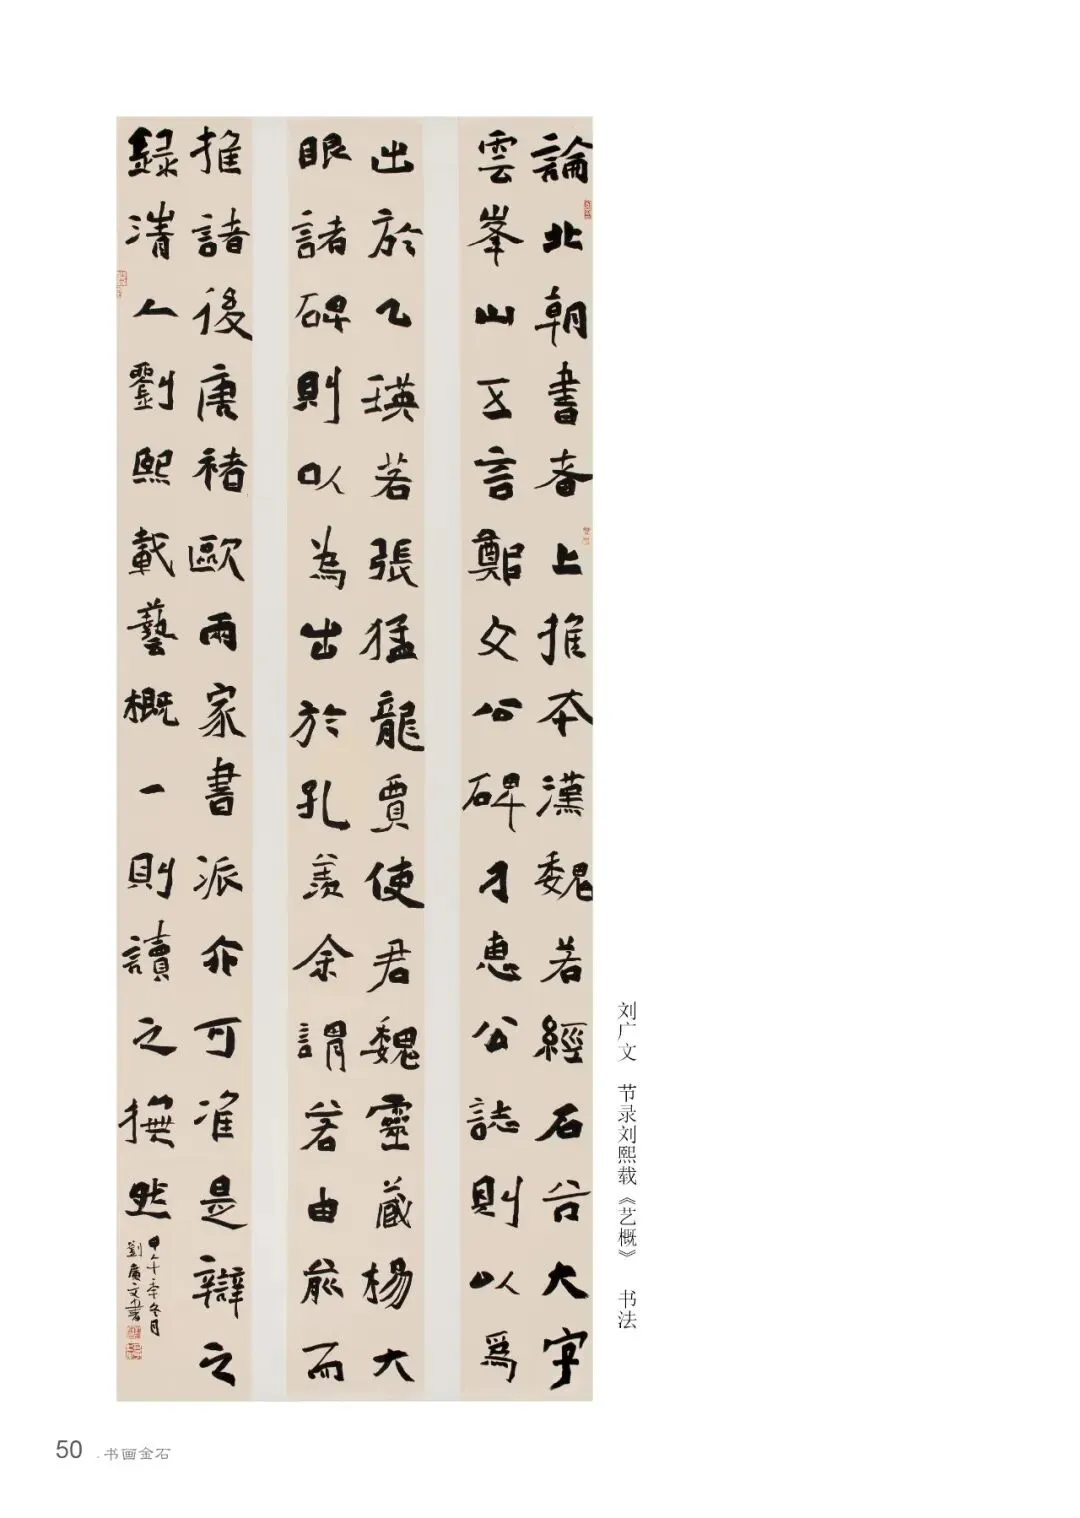 論北朝書者上推本漢魏若經石谷大字
雲峯山五言鄭文公碑刁惠公誌則以爲
出於乙瑛若張猛龍賈使君魏靈藏楊大
眼諸碑則以為出於孔羨余謂若由前而
推諸後唐褚歐兩家書派亦可准是辯之
録清人劉熙載藝概一則讀之撫然
劉廣文書
刘广文 节录刘熙载《艺概》 书法
50 .书画金石